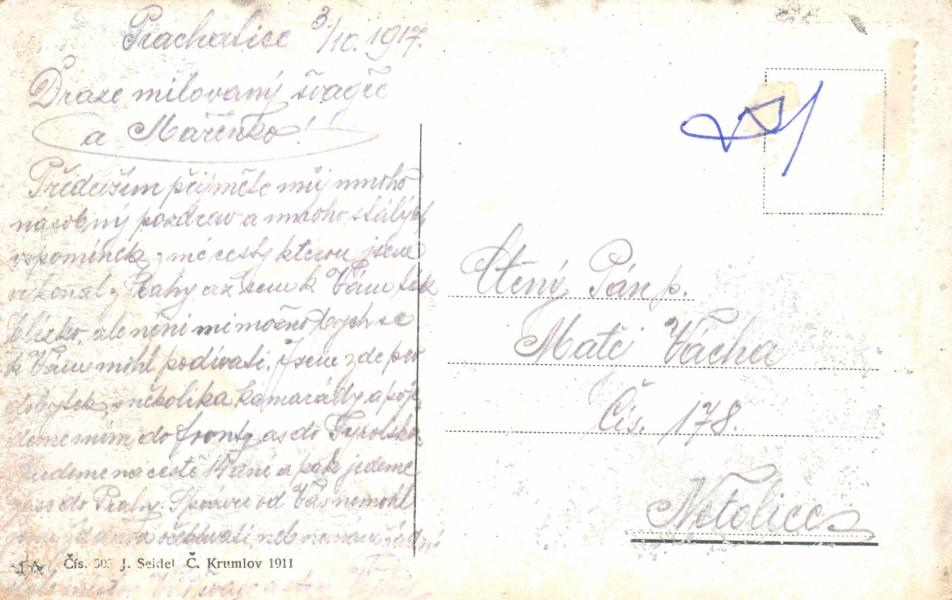 Prachatice 3/10. 1917.
Draze milovaný švagře
a Mařenko!
Předevšim přijměte můj mnoho
násobný pozdrav a mnoho stálých
vzpomínek z mé cesty kterou jsem
vykonal z Prahy až sem k Vám tak
blízko, ale není mi možno bych se
k Vám mohl podívati. Jsem zde pro
dobytek s několika kamarády a poj
deme s ním do fronty as do Tyrolska.
Budeme na cestě 14 dní a pak jedeme
zase do Prahy. Spraví od Vás nemohl
jsem
Čís. 303 J. Seidel Č. Krumlov 1911
Ctěný Pán p.
Matěj Vácha
Čís. 178.
Netolice